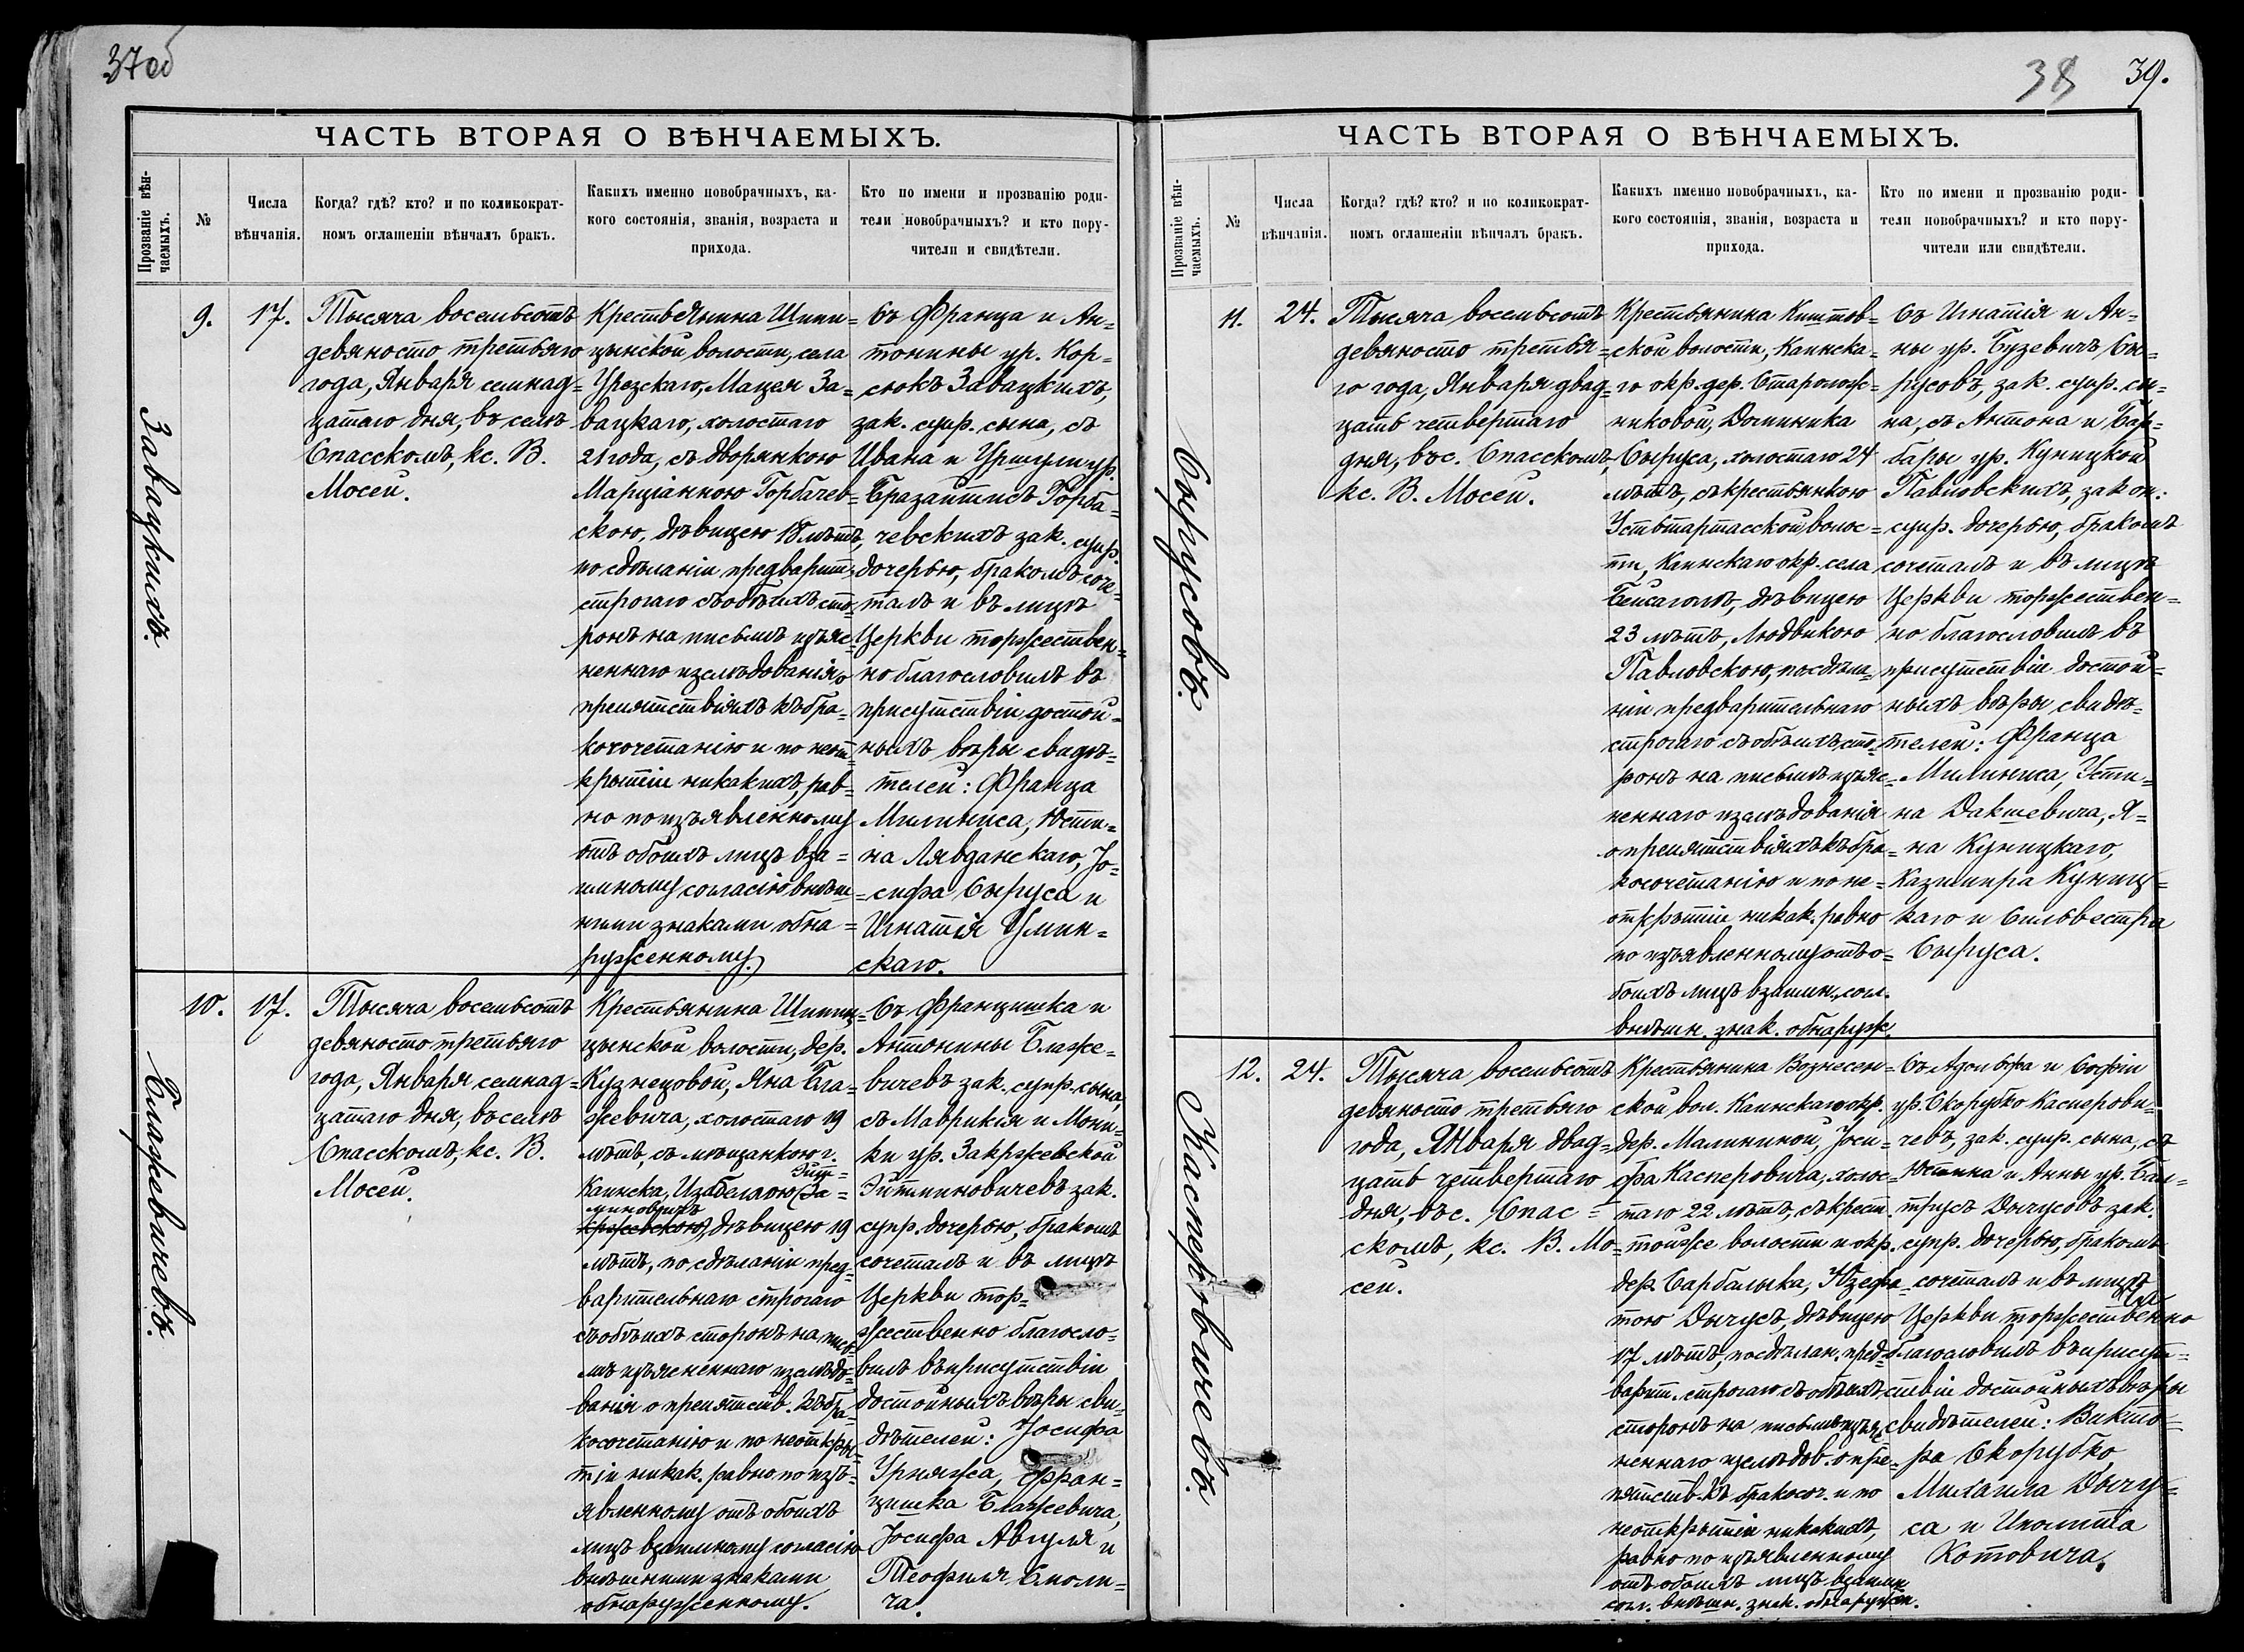 37об
ЧАСТЬ ВТОРАЯ О ВѢНЧАЕМЫХЪ.
Прозваніе вѣн-
чаемыхъ.
№
Числа
вѣнчанія.
Когда? гдѣ? кто? и по коликократ-
номъ оглашеніи вѣнчалъ бракъ.
Какихъ именно новобрачныхъ, ка-
кого состоянія, званія, возраста и
прихода.
Кто по имени и прозванію роди-
тели новобрачныхъ? и кто пору-
чители и свидѣтели.
Завацкихъ.
9.
17.
Тысяча восемьсотъ
девяносто третьяго
года, Января семнад=
цатаго дня, въ селѣ
Спасскомъ, кс. В.
Мосей.
Крестьянина Шипи=
цынской волости, села
Урезскаго, Мацея За=
вацкаго, холостаго
21 года, съ дворянкою
Марціанною Горбачев=
скою, дѣвицею 18 лѣтъ,
по сдѣланіи предварит.
строгаго съ обѣихъ сто-
ронъ на письмѣ изъяс-
неннаго изслѣдованія о
препятствіяхъ къ бра-
косочетанію и по неот-
крытіи никакихъ, рав-
но по изъявленному
отъ обоихъ лицъ вза=
имному согласію внѣш=
ними знаками обна=
руженному.
Съ Франца и Ан=
тонины ур. Кор=
сюкъ Завацкихъ,
зак. супр. сына, съ
Ивана и Уршули ур.
Бразайтисъ Горба=
чевскихъ зак. супр.
дочерью, бракомъ соче-
талъ и въ лицѣ
Церкви торжествен=
но благословилъ въ
присутствіи достой=
ныхъ вѣры свидѣ=
телей: Франца
Милыниса, Юсти=
на Лявданскаго, Іо=
сифа Сыруса и
Игнатія Улин=
скаго.
Блажевичевъ.
10.
17.
Тысяча восемьсотъ
девяносто третьяго
года, Января семнад=
цатаго дня, въ селѣ
Спасскомъ, кс. В.
Мосей.
Крестьянина Шипи=
цынской волости, дер.
Кузнецовой, Яна Бла=
жевича, холостаго 19
лѣтъ, съ мѣщанкою г.
Каинска, Изабеллою (За=
Эйт=
миновичъ
кржевскою), дѣвицею 19
лѣтъ, по сдѣланіи пред=
варительнаго строгаго
съ обѣихъ сторонъ на пись-
мѣ изъясненнаго изслѣдо-
ванія о препятств. къ бра-
косочетанію и по неоткры-
тіи никак. равно по изъ-
явленному отъ обоихъ
лицъ взаимному согласію
внѣшними знаками
обнаруженному.
Съ Францишка и
Антонины Блаже=
вичевъ зак. супр. сына,
съ Маврикія и Мони-
ки ур. Закржевской
Эйтминовичевъ зак.
супр. дочерью, бракомъ
сочеталъ и въ лицѣ
Церкви тор=
жественно благосло-
вилъ въ присутствіи
достойныхъ вѣры сви-
дѣтелей: Іосифа
Урняжа, Фран=
цишка Блажевича,
Іосифа Авгуля и
Теофиля Смоли=
ча.
38
39.
ЧАСТЬ ВТОРАЯ О ВѢНЧАЕМЫХЪ.
Прозваніе вѣн-
чаемыхъ.
№
Числа
вѣнчанія.
Когда? гдѣ? кто? и по коликократ-
номъ оглашеніи вѣнчалъ бракъ.
Какихъ именно новобрачныхъ, ка-
кого состоянія, званія, возраста и
прихода.
Кто по имени и прозванію роди-
тели новобрачныхъ? и кто пору-
чители или свидѣтели.
Сырусовъ.
11.
24.
Тысяча восемьсотъ
девяносто третья=
го года, Января двад=
цать четвертаго
дня, въ с. Спасскомъ,
кс. В. Мосей.
Крестьянина Киштов=
ской волости, Каинска-
го окр. дер.
никовой, Доминика
Сыруса, холостаго 24
лѣтъ, съ крестьянкою
Устьтартасской волос=
ти, Каинскаго окр. села
дѣвицею
23 лѣтъ, Людвикою
Павловскою, по сдѣла-
ніи предварительнаго
строгаго съ обѣихъ сто-
ронъ на письмѣ изъяс-
неннаго изслѣдованія
о препятствіяхъ къ бра=
косочетанію и по не=
открытіи никак. равно
по изъявленному отъ о=
боихъ лицъ взаимн. согл.
внѣшн. знак. обнаруж.
Съ Игнатія и Ан=
ны ур. Бузевичъ Сы=
русовъ, зак. супр. сы=
на, съ Антона и Бар=
бары ур. Куницкой
Павловскихъ, закон.
супр. дочерью, бракомъ
сочеталъ и въ лицѣ
Церкви торжествен=
но благословилъ въ
присутствіи достой=
ныхъ вѣры свидѣ=
телей: Франца
Милыниса, Усти=
на Дакшевича, Я=
на Куницкаго,
Казимира Куниц=
каго и Сильвестра
Сыруса.
Касперовичевъ.
12.
24.
Тысяча восемьсотъ
девяносто третьяго
года, Января двад=
цать четвертаго
дня, въ с. Спас=
скомъ, кс. В. Мо=
сей.
Крестьянина Вознесен=
ской вол. Каинскаго окр.
дер. Малининой, Іоси=
фа Касперовича, холос=
таго 22 лѣтъ, съ крест.
тойже волости и окр.
дер. Сарбалыка, Юзефа-
тою Дычусъ, дѣвицею
17 лѣтъ, по сдѣлан. пред-
варит. строгаго съ обѣихъ
сторонъ на письмѣ изъяс-
неннаго изслѣдов. о пре-
пятств. къ бракосоч. и по
неоткрытіи никакихъ,
равно по изъявленному
отъ обоихъ лицъ взаимн.
согл. внѣшн. знак. обнаружен.
Съ Адольфа и Софіи
ур. Скорубко Касперови=
чевъ, зак. супр. сына, съ
Юстина и Анны ур. Бал=
трусъ Дычусовъ зак.
супр. дочерью, бракомъ
сочеталъ и въ лицѣ
Церкви торжественно
благословилъ въ присут=
ствіи достойныхъ вѣры
свидѣтелей: Викто=
ра Скорубко,
Михаила Дычу=
са и Иполита
Котовича.